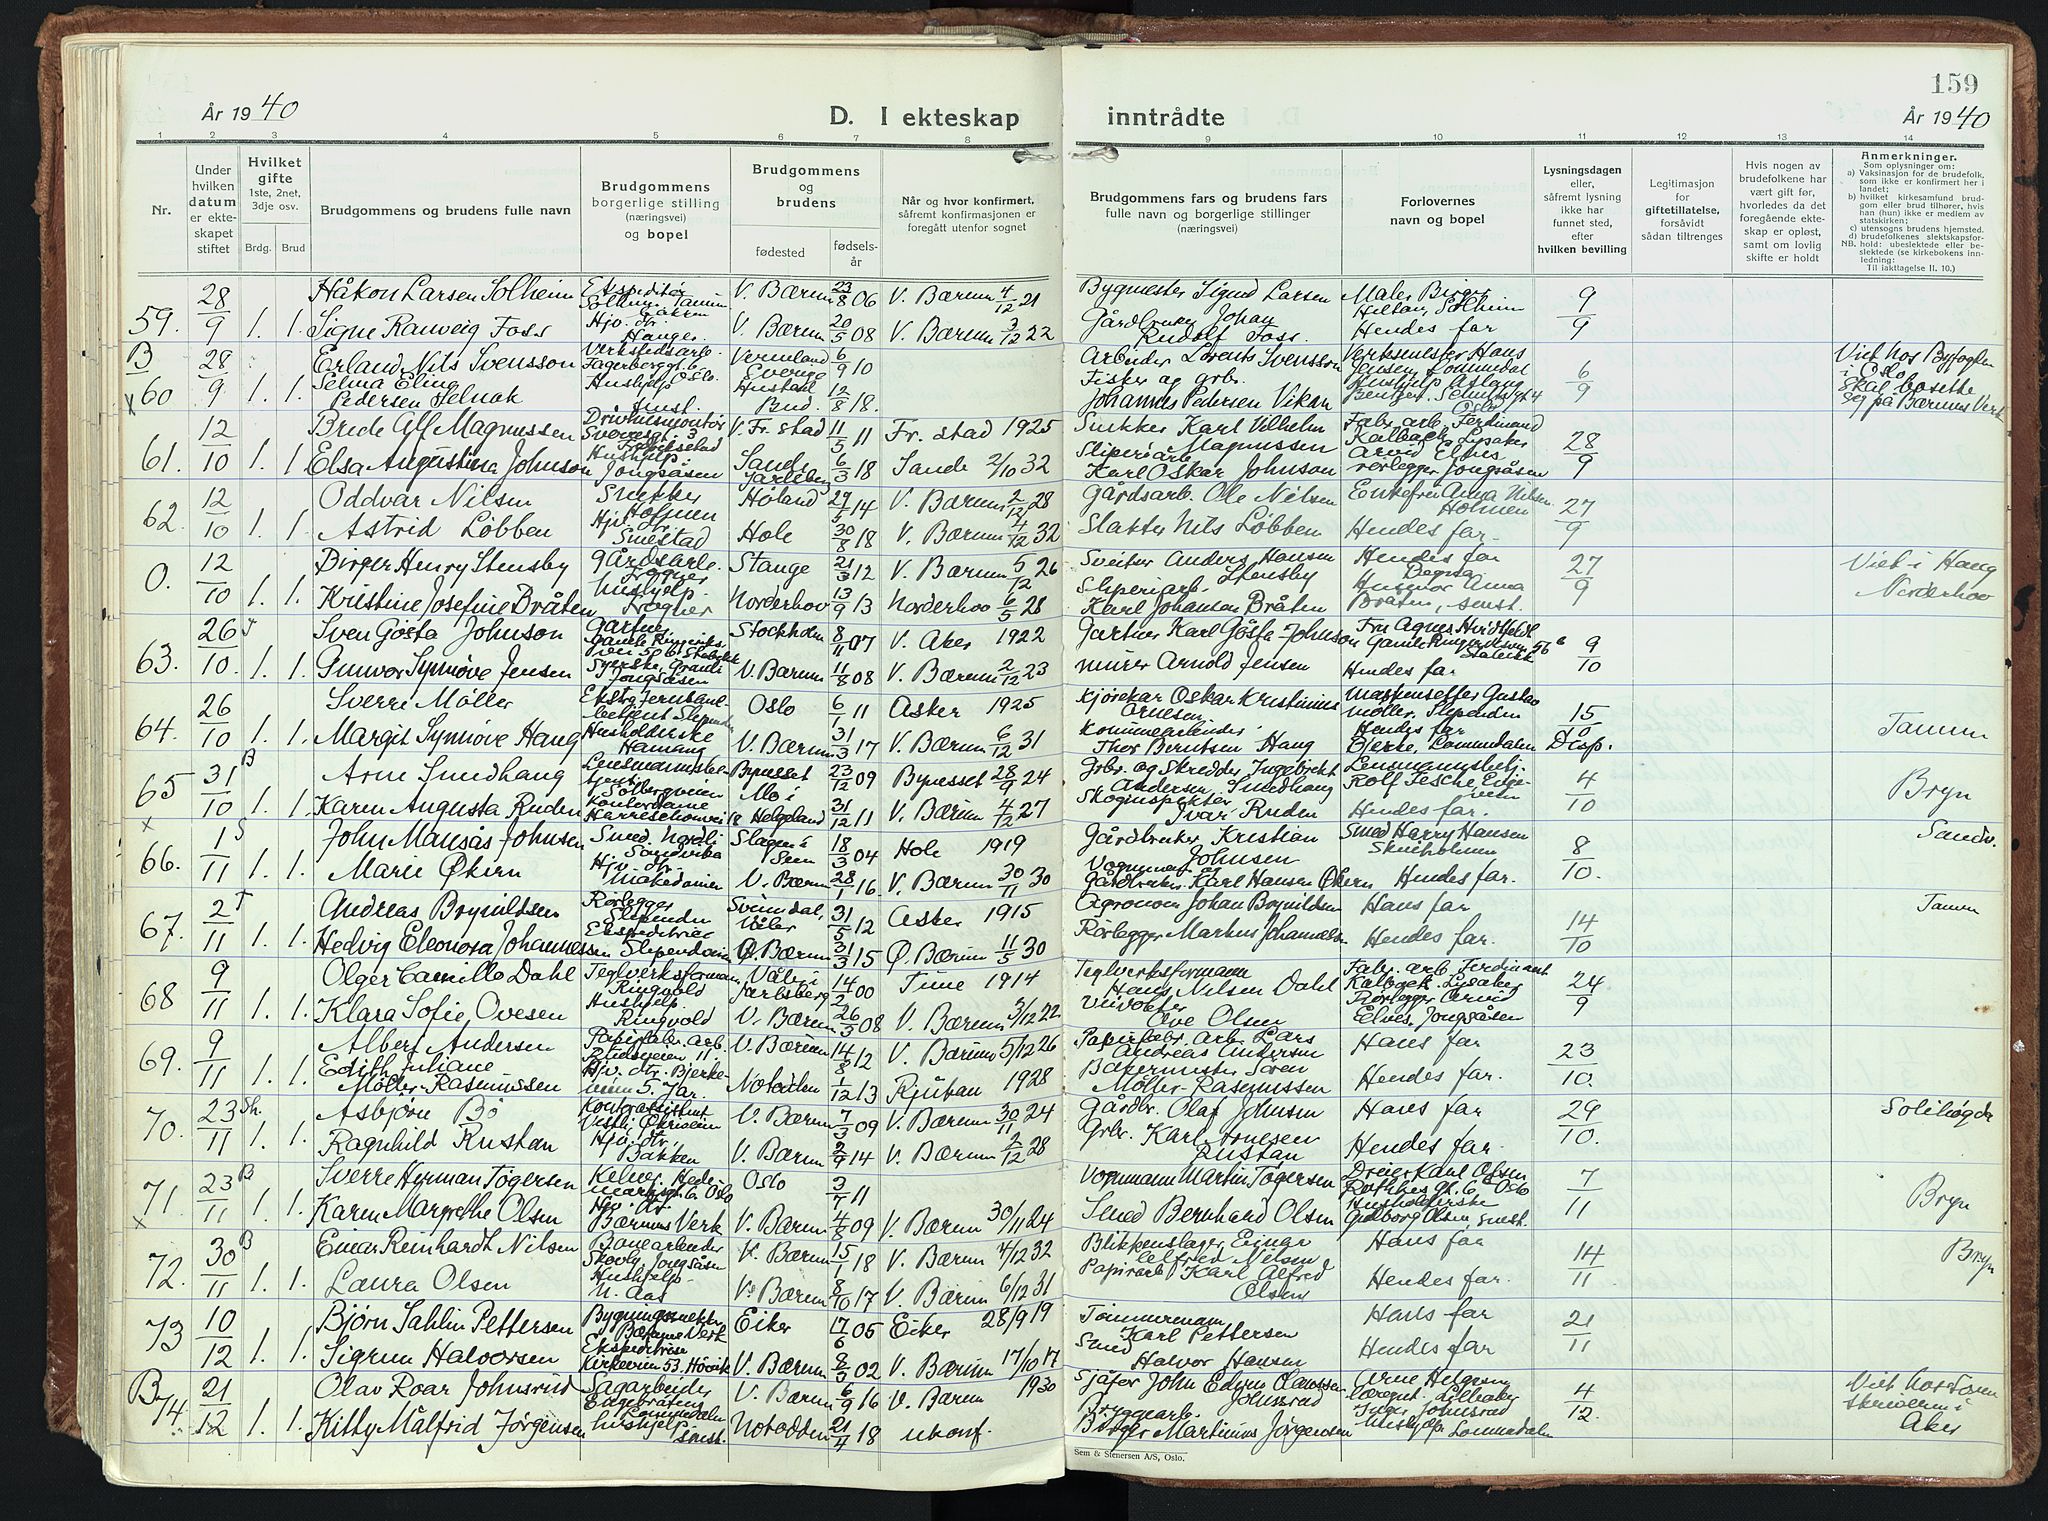 159
År 1940
D. I ekteskap inntrådte
År 1940
1 2 3 4 5 6 7 8 9 10 11 12 13 14
Nr.
Under hvilken datum er ekteskapet stiftet
Hvilket gifte
1ste, 2net, 3dje osv.
Brdg. Brud
Brudgommens og brudens fulle navn
Brudgommens borgerlige stilling (næringsvei) og bopel
Brudgommens og brudens
fødested
fødselsår
Når og hvor konfirmert, såfremt konfirmasjonen er foregått utenfor sognet
Brudgommens fars og brudens fars fulle navn og borgerlige stillinger (næringsvei)
Forlovernes navn og bopel
Lysningsdagen eller, såfremt lysning ikke har funnet sted, efter hvilken bevilling
Legitimasjon for giftetillatelse, forsåvidt sådan tiltrenges
Hvis nogen av brudefolkene har vært gift før, hvorledes da det foregående ekteskap er opløst, samt om lovlig skifte er holdt
Anmerkninger.
Som oplysninger om:
a) Vaksinasjon for de brudefolk, som ikke er konfirmert her i landet;
b) hvilket kirkesamfund brudgom eller brud tilhører, hvis han (hun) ikke er medlem av statskirken;
c) utensogns brudens hjemsted.
d) brudefolkenes slektskapsforhold: ubeslektede eller beslektede (se kirkebokens innledning:
NB.
Til iakttagelse II. 10.)
59. 28/9 1. 1. Håkon Larsen Solheim Ekspeditør Solheim, Tanum V. Bærum 23/8 06 V. Bærum 4/12 21 Bygmester Sigurd Larsen Maler Birger Solheim 9/9
Signe Ranveig Foss Hjv. dtr. Hauger V. Bærum 20/5 08 V. Bærum 3/12 22 Gårdbruker Johan Rudolf Foss. Hendes far
B 60 x 28/9 1. 1. Erland Nils Svensson Verkstedsarb. Fagerborggt. 6 Oslo. Vermland Sverige 6/9 10 Arbeider Lorents Svensson Verksmester Hans Jensen, Lommedal 6/9 Viet hos Byfogden i Oslo. Skal bosette seg på Bærums Verk
Selma Eline Pedersen Hushjelp Hustad Bud. 12/8 18. Fisker og grbr. Johannes Pedersen Vikan Hushjelp Aslaug Oslo
61. 12/10 1. 1. Brede Alf Magnussen V. Fr. stad 11/5 11 Fr. stad 1925 Snekker Karl Vilhelm Magnussen Fabr. arb. Ferdinand Lysaker 28/9
Elsa Augustina Johnson Hushjelp Jongsåsen Sande Jarlsberg 6/3 18 Sande 2/10 32 Sliperiarb. Karl Oskar Johnson Arvid Elves rørlegger Jongsåsen
62. 12/10 1. 1. Oddvar Nilsen Snekker Holmen Høland 29/5 14 V. Bærum 2/12 28 Gårdsarb. Ole Nilsen Enkefru Anna Nilsen Holmen 27/9
Astrid Løbben Hjv. dtr. Smestad Hole 30/8 18 V. Bærum 4/12 32 Slakter Nils Løbben Hendes far
0. 12/10 1. 1. Birger Henry Stensby Gårdsarb. Frogner Stange 21/3 12 V. Bærum 5/12 26 Sveitser Anders Hansen Stensby Hendes far 27/9 Viet i Haug Norderhov
Kristine Josefine Bråten Hushjelp. Frogner Norderhov 13/9 13 Norderhov 6/5 28 Sliperiarb. Karl Johansen Bråten Husmor Anna Bråten, smst.
63. 26/10 T 1. 1. Sven Gösta Johnson Gartner Gamle Ringeriksvei 56 b Stabekk Stockholm 8/11 07 V. Aker 1922 Gartner Karl Gösta Johnson Fru Agnes Hvidtfeldt Gamle Ringeriksvei 56 b Stabekk 9/10
Gunvor Synnøve Jensen Syerske, Jongsåsen V. Bærum 11/8 08 V. Bærum 2/12 23 Murer Arnold Jensen Hendes far
64. 26/10 1. 1. Sverre Møller Slependen Oslo 6/1 11 Asker 1925 Kjørekar Oskar Kristinius Arnesen Gustav Møller, Slependen 15/10 Disp. Tanum
Margit Synnøve Haug Husholderske Hamang V. Bærum 31/3 17 V. Bærum 6/12 31 Kommunearbeider Thor Berntsen Haug Hendes far Bjerke, Lommedalen
65 x 31/10 B 1. 1. Arne Smedhaug Lensmannsbetjent Solbergveien Bynesset 23/12 09 Bynesset 28/9 24 Grbr. og Skredder Ingebrigt Andersen Smedhaug Lensmannsbetj. Rolf Tesche 4/10 Bryn
Karen Augusta Ruden Kontordame Mo i Helgeland 31/12 11 V. Bærum 4/12 27 Skoginspektør Ivar Ruden Hendes far.
66. 1/11 S 1. 1. John Mansås Johnsen Smed. Nordli Sandvika Slagen i Sem 18/3 04 Hole 1919 Gårdbruker Kristian Johnsen Smed Harry Hansen Skuiholmen 8/10. Sandv.
Marie Økern Hjv. dtr. V. Bærum 28/1 16. V. Bærum 30/11 30 Vognmann og Gårdbruker Karl Hansen Økern Hendes far.
67. 2/11 T 1. 1. Andreas Brynildsen Rørlegger Slependen Svinndal, Våler 31/5 12 Asker 1915 Agronom Johan Brynildsen Hans far 14/10 Tanum
Hedvig Eleonora Johannessen Ekspeditrise Ø. Bærum 31/3 15 Ø. Bærum 11/5 30 Rørlegger Markus Johannessen Hendes far.
68 9/11 1. 1. Olger Camillo Dahl Teglverksformann Ringvold Våle i Jarlsberg 14/2 00 Tune 1914 Teglverksformann Hans Nilsen Dahl Fabr. arb. Ferdinant Lysaker 24/9
Klara Sofie Ovesen Hushjelp Ringvold V. Bærum 26/3 08 V. Bærum 3/12 22 Ove Olsen Rørlegger Arvid Elves, Jongsåsen
69. 9/11 1. 1. Albert Andersen Papirfabr. arb. V. Bærum 14/8 12 V. Bærum 5/12 26 Papirfabr. arb. Lars Andreas Andersen Hans far 23/10.
Edith Juliane Møller-Rasmussen Hjv. dtr. Bjerkeveien 5. Jar. Notodden 1/12 13 Rjukan 1928 Bakermester Søren Møller-Rasmussen Hendes far.
70. 23/11 Sh. 1. 1. Asbjørn Bø Kontorassistent V. Bærum 7/3 09 V. Bærum 30/11 24 Gårdbr. Olaf Johnsen Hans far 29/10. Solihøgda
Ragnhild Rustan Hjv. dtr. Bakken V. Bærum 2/9 14 V. Bærum 2/12 28 Grbr. Karl Arnesen Rustan Hendes far.
71. x 23/11 B 1. 1. Sverre Herman Tøgersen Kelner. Hedemarksgt. 6 Oslo Oslo 3/7 11 Vognmann Martin Tøgersen Dreier Karl Olsen Rathkes gt. 6 Oslo 7/11 Bryn
Karen Margrethe Olsen Hjv. dtr. Bærums Verk V. Bærum 4/8 09 V. Bærum 30/11 24 Smed Bernhard Olsen Husholderske Gudborg Olsen, smst.
72. 30/11 B 1. 1. Einar Reinhardt Nilsen Jongsåsen V. Bærum 15/1 18 V. Bærum 4/12 32 Blikkenslager Einar Alfred Nilsen Hans far 14/11. Bryn
Laura Olsen Hushjelp N. Aas V. Bærum 8/10 17 V. Bærum 6/12 31 Papirarb. Karl Alfred Olsen Hendes far.
73 10/12 1. 1. Bjørn Sahlin Pettersen Bygningssnekker Bærums Verk Eiker 17/6 05 Eiker 28/9 19 Tømmermann Karl Pettersen Hans far 21/11
Sigrun Halvorsen Ekspeditrise Kirkeveien 53. Høvik V. Bærum 8/3 02 V. Bærum 17/10 17 Smed Halvor Hansen Hendes far
B 74. 21/12 1. 1. Olav Roar Johnsrud Sagarbeider Lommedalen V. Bærum 6/9 16 V. Bærum 1930 Sjåfør John Edvin Olaussen Johnsrud Arne Helgesen 4/12. Viet hos Sorenskriveren i Aker
Kitty Målfrid Jørgensen hushjelp smst. Notodden 21/4 18 ukonf. Bryggearb. Birger Martinius Jørgensen Inger Johnsrud Hushjelp Lommedalen
Sem & Stenersen A/S, Oslo.